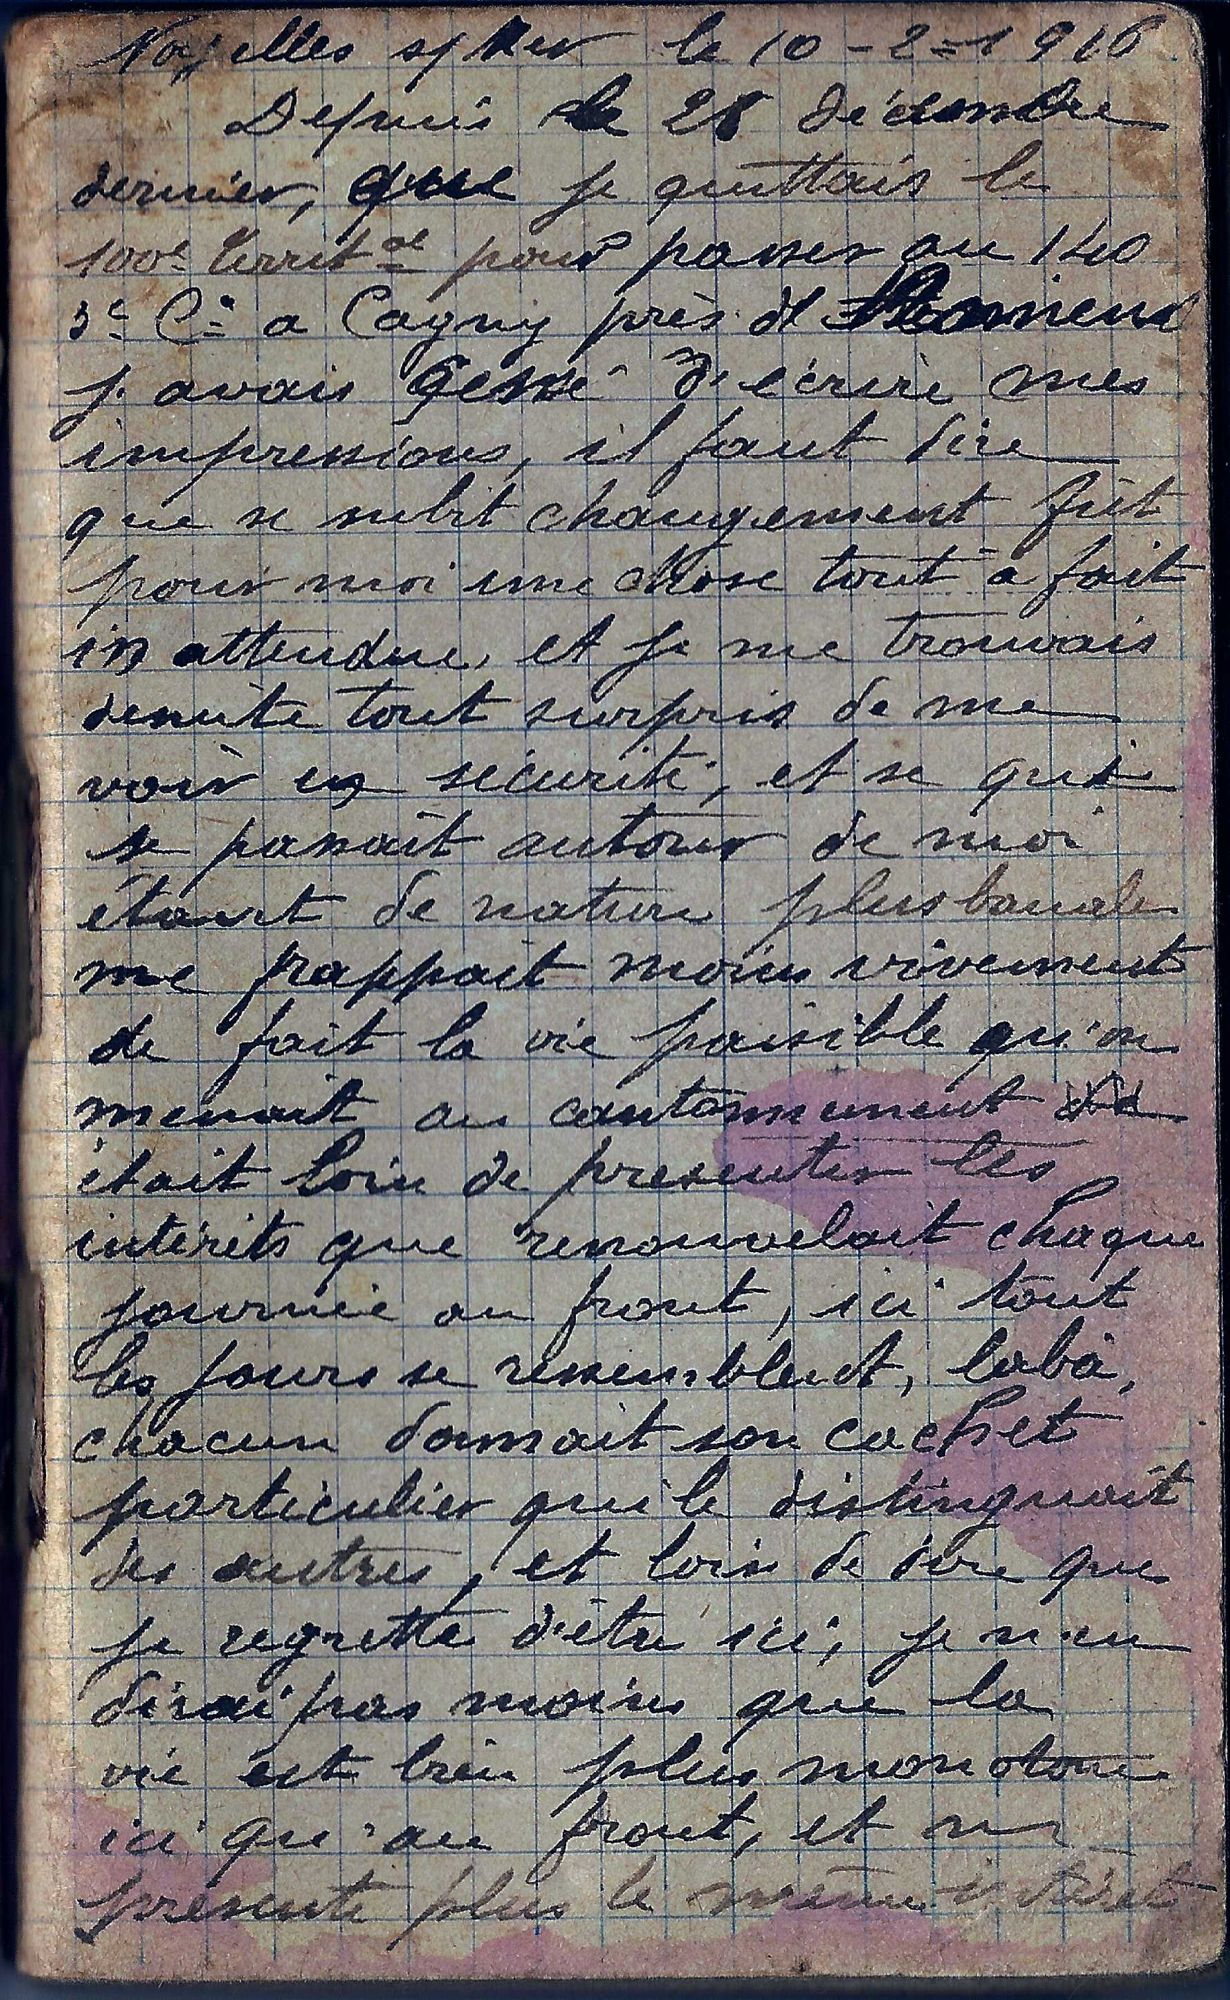 Noyelles s/ Mer le 10-2=1916
Depuis le 28 décembre
dernier, que je quittais le
100e territal pour passer au 140
3e Cie a Cagny près d'Amiens
j'avais cessé d'écrire mes
impressions, il faut dire
que se subit changement fût
pour moi une chose tout à fait
inattendue, et je me trouvais
ensuite tout surpris de me
voir en sécurité, et se qui
se passait autour de moi
étant de nature plus banale
me frappait moins vivement
de fait la vie paisible qu'on
menait au cantonnement
était loin de presenter les
intérêts que renouvelait chaque
journée au front, ici tout
les jours se ressemblent, labà,
chacun donnait son cachet
particulier qui le distinguait
des autres, et loin de dire que
je regrette d'être ici, je n'en
dirai pas moins que la
vie est bien plus monotone
ici qu'au front, et ne
présente plus le même intérêt